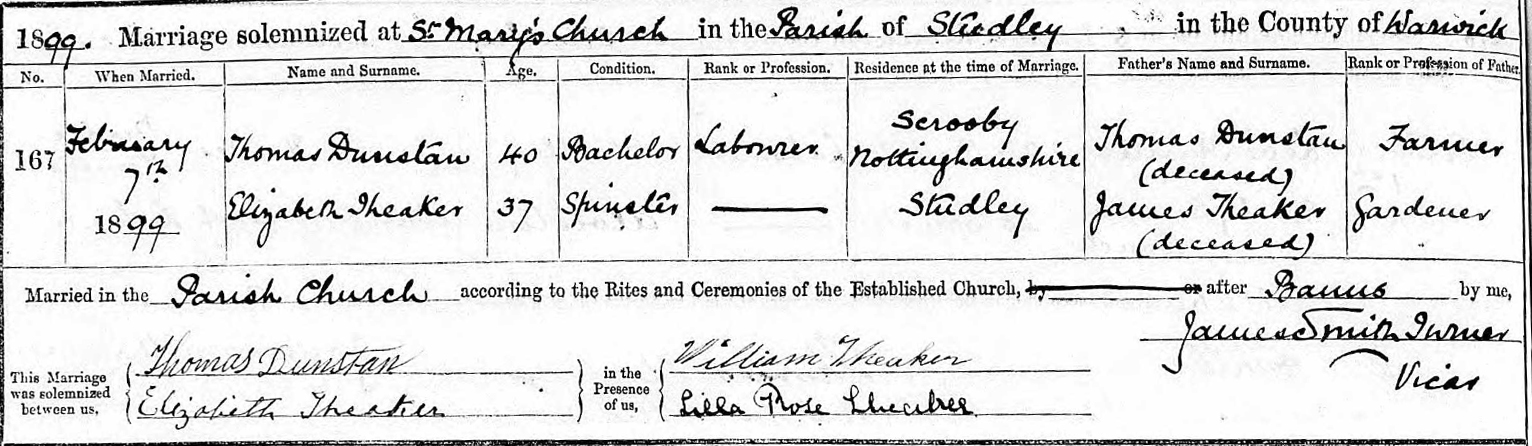 1899. Marriage solemnized at St Mary's Church in the Parish of Studley in the County of Warwick
No. When Married. Name and Surname. Age. Condition. Rank or Profession. Residence at the time of Marriage. Father's Name and Surname. Rank or Profession of Father.
167 February 7th 1899 Thomas Dunstan 40 Bachelor Labourer Scrooby Nottinghamshire Thomas Dunstan (deceased) Farmer
Elizabeth Theaker 37 Spinster Studley James Theaker (deceased) Gardener
Married in the Parish Church according to the Rites and Ceremonies of the Established Church, by or after Banns by me,
James Smith Turner
Vicar
This Marriage was solemnized between us, Thomas Dunstan in the Presence of us, William Theaker
Elizabeth Theaker Lilla Rose